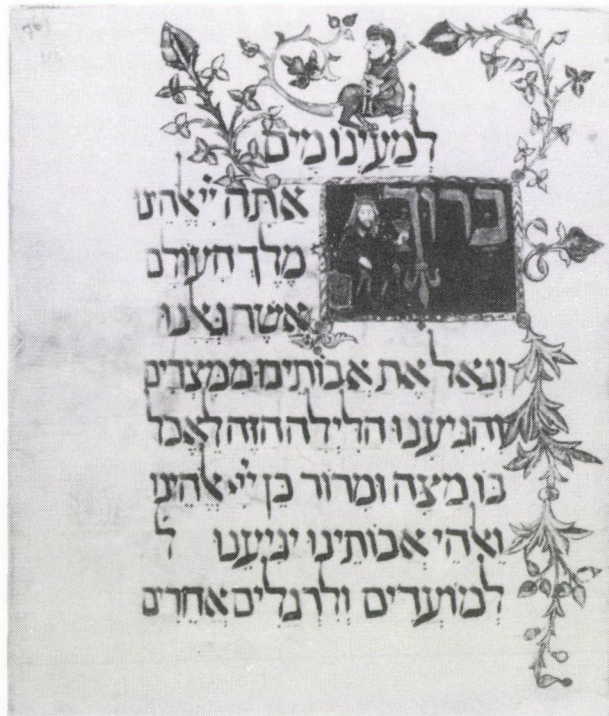 למעינו מים
ברוך אתה ייי אלהינו
מלך העולם
אשר גאלנו
וגאל את אבותינו ממצרים
והגיענו הלילה הזה לאכל
בו מצה ומרור כן ייי אלהינו
ואלהי אבותינו יגיענו ל
למועדים ולרגלים אחרים